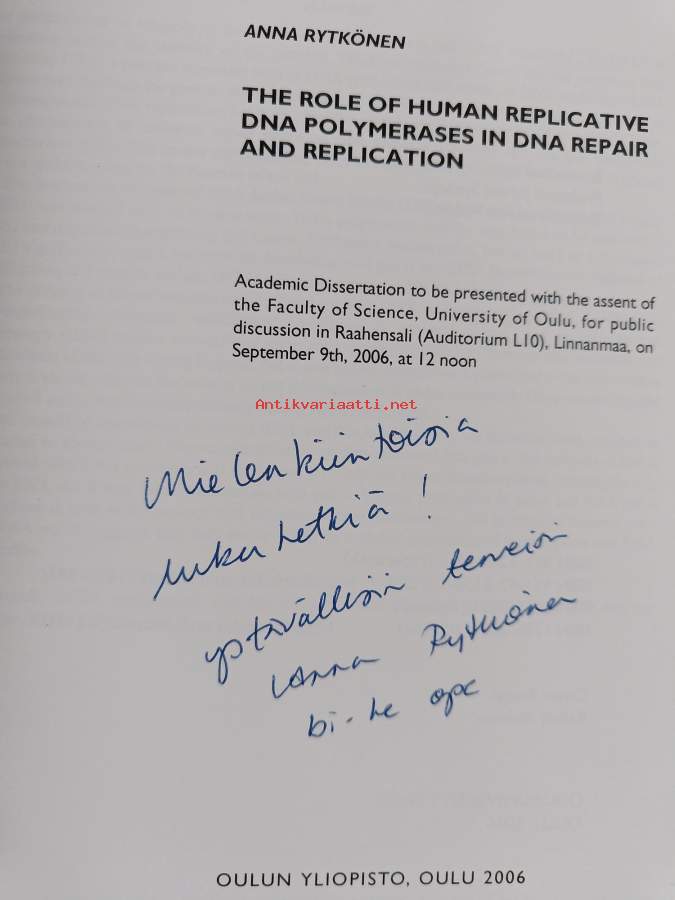 ANNA RYTKÖNEN
THE ROLE OF HUMAN REPLICATIVE
DNA POLYMERASES IN DNA REPAIR
AND REPLICATION
Academic Dissertation to be presented with the assent of
the Faculty of Science, University of Oulu, for public
discussion in Raahensali (Auditorium L10), Linnanmaa, on
September 9th, 2006, at 12 noon
Antikvariaatti.net
Mielenkiintoisia
lukuhetkiä!
ystävällisin terveisin
Anna Rytkönen
bi-he ope
OULUN YLIOPISTO, OULU 2006